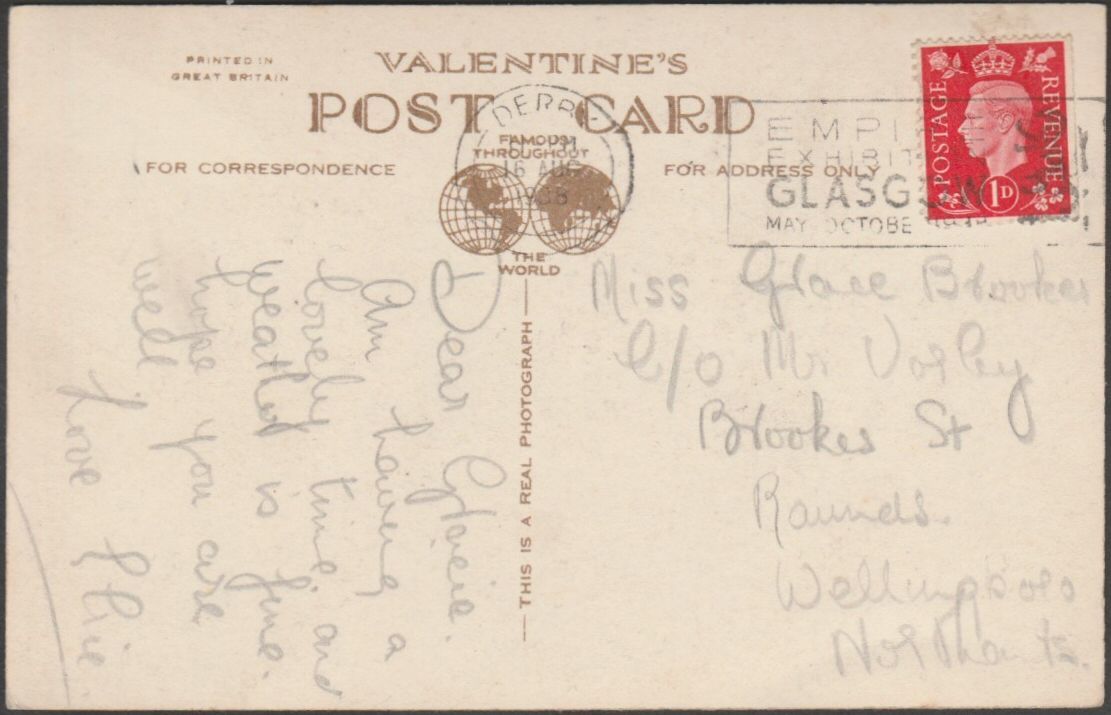 PRINTED IN
GREAT BRITAIN
VALENTINE'S
POST CARD
FAMOUS
THROUGHOUT
THE
WORLD
FOR CORRESPONDENCE
FOR ADDRESS ONLY
DERBY
16 AUG
1938
EMPI
EXHIBIT
GLASGOW
MAY OCTOBE
POSTAGE
REVENUE
1D
THIS IS A REAL PHOTOGRAPH
Dear Gracie.
Am having a
lovely time, and
weather is fine.
hope you are
well
Love Elsie
Miss Grace Brookes
c/o Mr Vorley
Brookes St
Raunds.
Wellingboro
Northants.